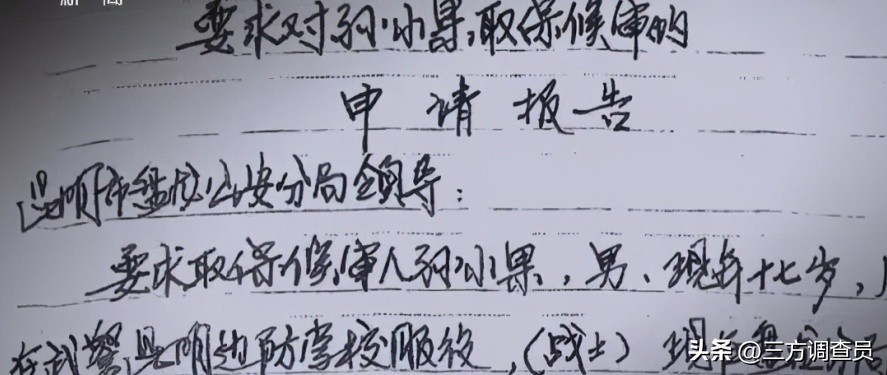 要求对孙小果取保候审的
申请报告
昆明市盘龙公安分局领导：
要求取保候审人孙小果，男、现年十七岁，
在武警昆明边防学校服役，（战士）现
头条 @三方调查员